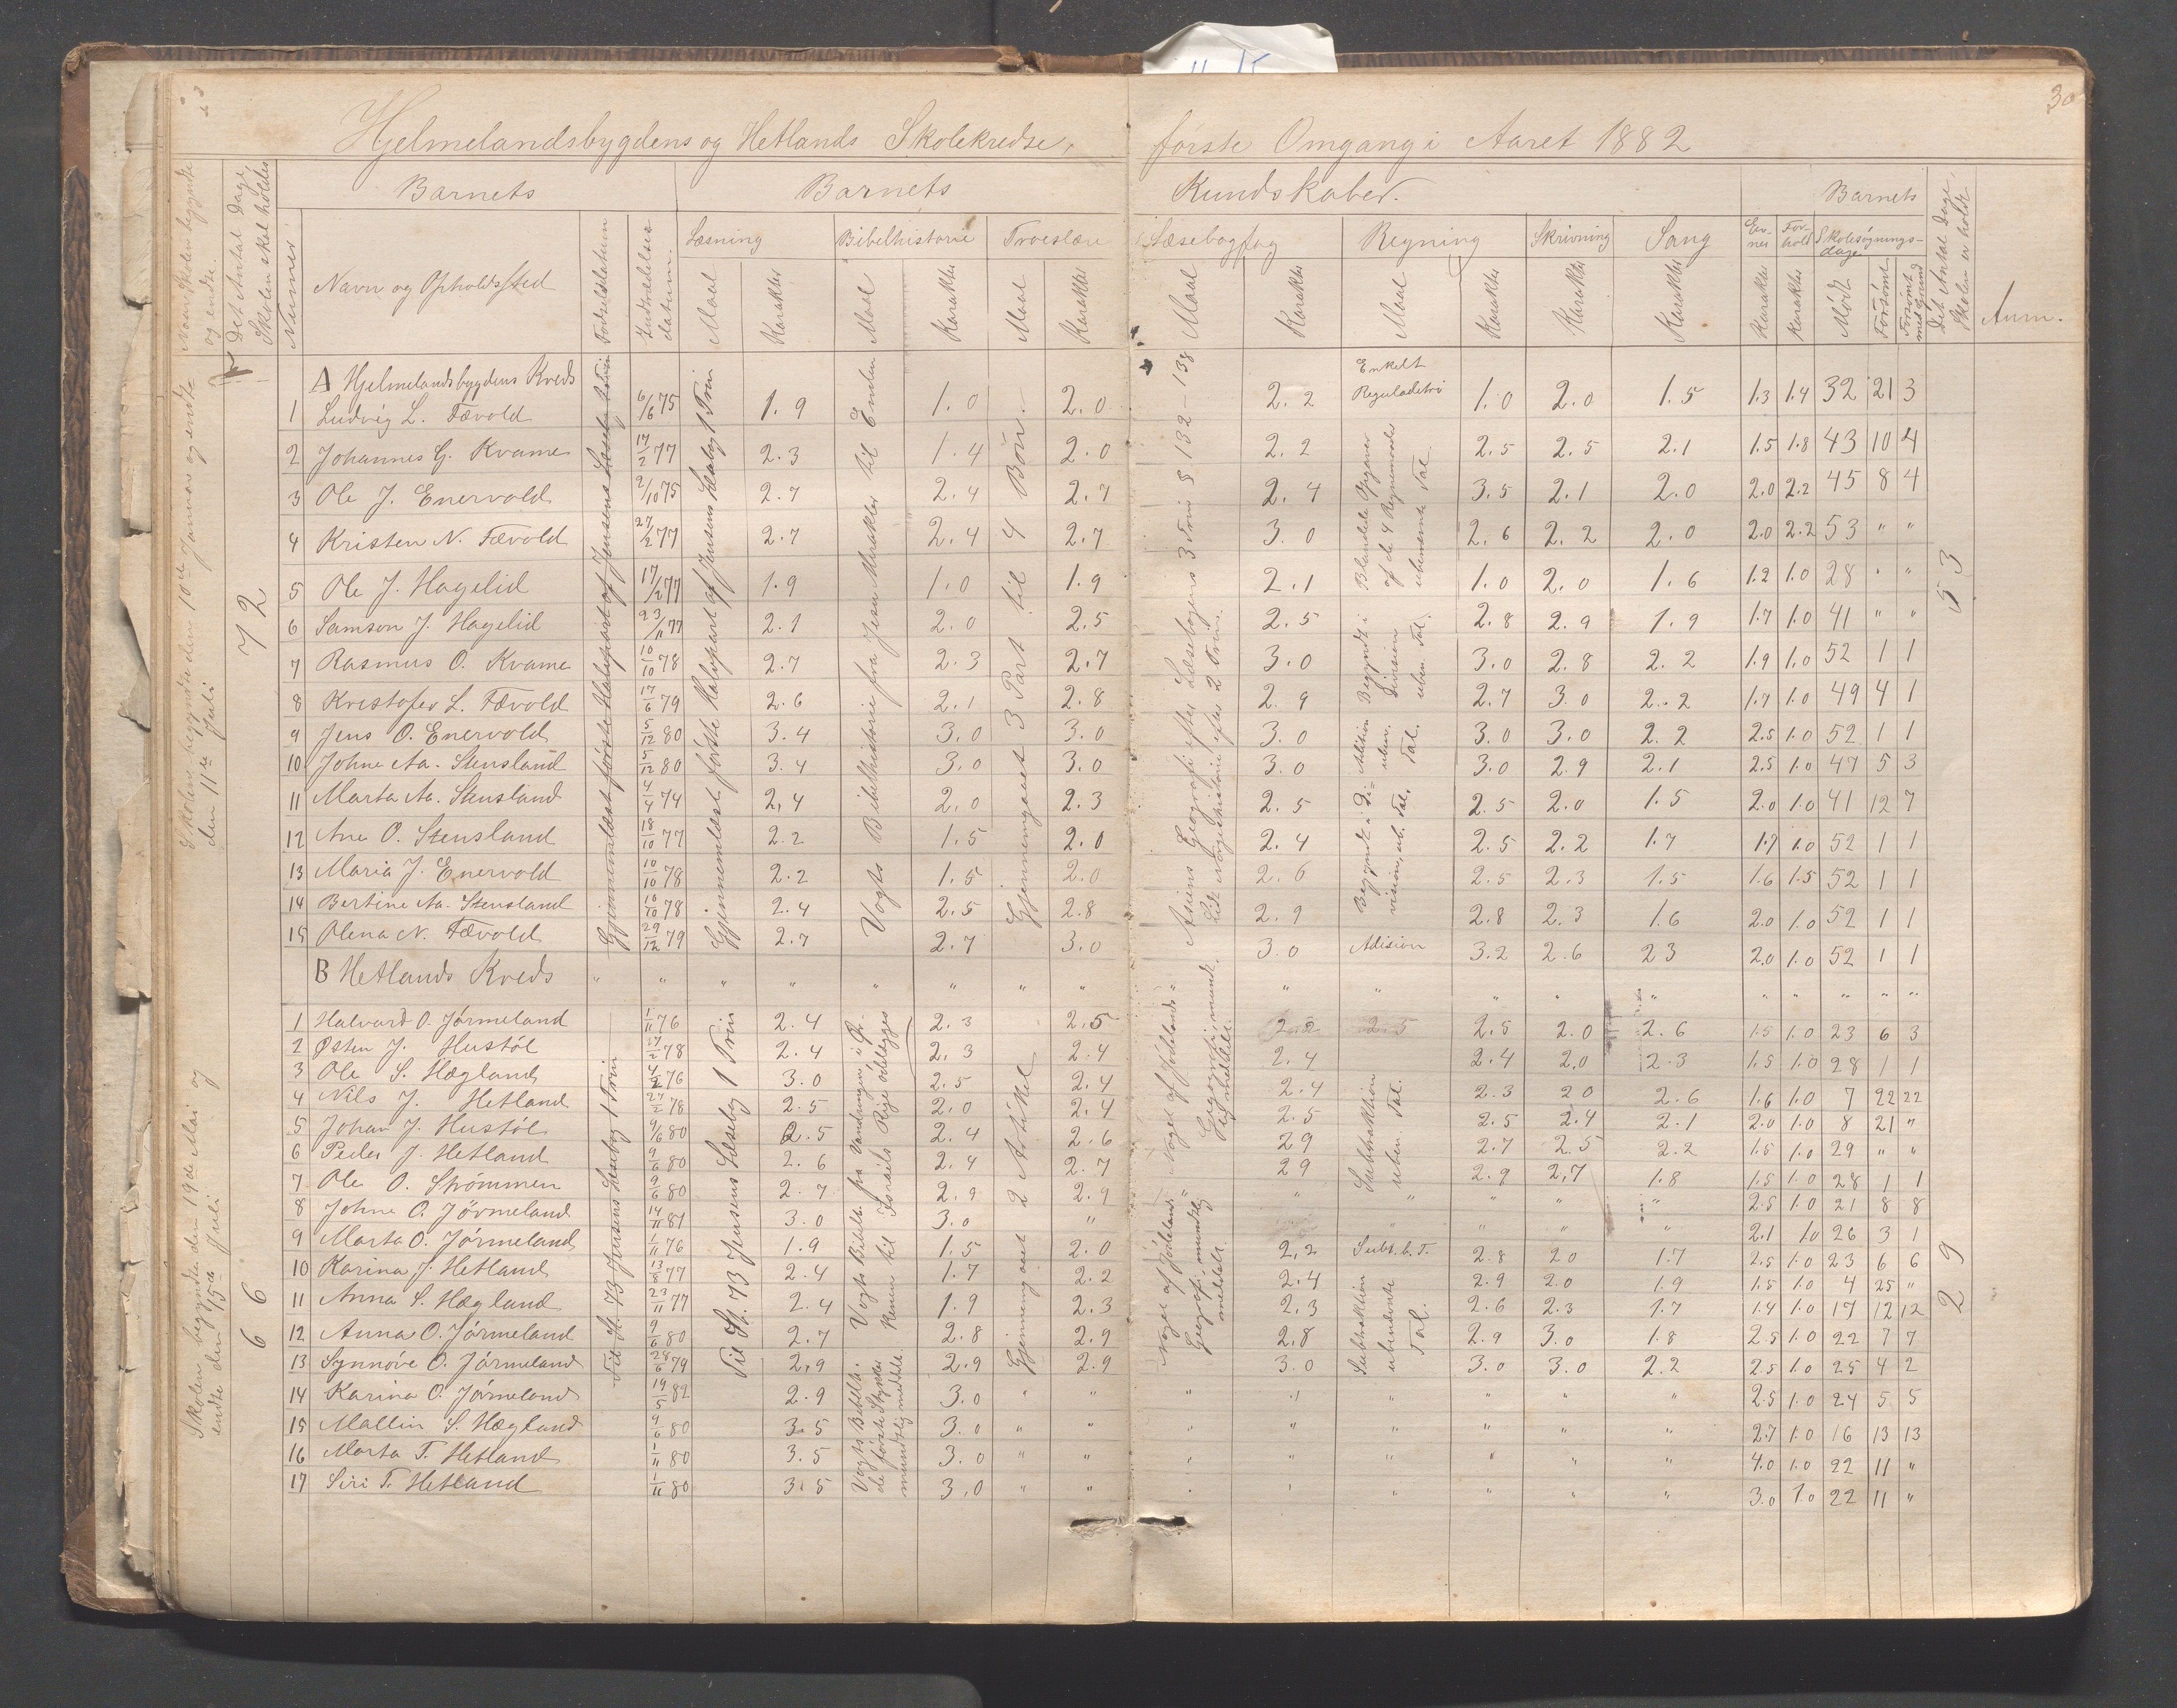 30
Hjelmelandsbygdens og Hetlands Skolekredse, første Omgang i Aaret 1882
Naar Skolen begyndte og endte.
Det Antal Dage, Skolen skal holdes
Numer
Barnets
Navn og Opholdssted
Fødselsdatum
Indtrædelsesdatum
Barnets Kundskaber.
Læsning
Maal
Karakter
Bibelhistorie
Maal
Karakter
Troeslære
Maal
Karakter
Læsebogfag
Maal
Karakter
Regning
Maal
Karakter
Skrivning
Karakter
Sang
Karakter
Evner
Karakter
Forhold
Karakter
Barnets
Skolesøgningsdage
Mødt
Forsømt
Forsømt med Grund
Det Antal Dage, Skolen er holdt
Anm.
Skolen begyndte den 10de Januar og endte den 11te Juli
72
53
A Hjelmelandsbygdens Kreds
Gjennemlæst første Halvpart af Jensens Læsebog 1 Trin
Vogts Bibelhistorie fra Jesu Mirakler til Enden
Gjennemgaaet 3 Part til 4 Bøn.
Enkelt Reguladetri
1 Ludvig L. Tævold 6/6 75 1.9 1.0 2.0 2.2 1.0 2.0 1.5 1.3 1.4 32 21 3
2 Johannes G. Kvame 17/2 77 2.3 1.4 2.0 2.2 2.5 2.5 2.1 1.5 1.8 43 10 4
3 Ole J. Enervold 2/10 75 2.7 2.4 2.7 2.4 3.5 2.1 2.0 2.0 2.2 45 8 4
4 Kristen N. Tævold 27/2 77 2.7 2.4 2.7 3.0 2.6 2.2 2.0 2.0 2.2 53 " "
5 Ole J. Hagelid 17/2 77 1.9 1.0 1.9 2.1 1.0 2.0 1.6 1.2 1.0 28 " "
6 Samson J. Hagelid 23/11 77 2.1 2.0 2.5 2.5 2.8 2.9 1.9 1.7 1.0 41 " "
7 Rasmus O. Kvame 10/10 78 2.7 2.3 2.7 3.0 3.0 2.8 2.2 1.9 1.0 52 1 1
8 Kristofer L. Tævold 17/6 79 2.6 2.1 2.8 2.9 2.7 3.0 2.2 1.7 1.0 49 4 1
9 Jens O. Enervold 5/12 80 3.4 3.0 3.0 3.0 3.0 3.0 2.2 2.5 1.0 52 1 1
10 Johne Aa. Stensland 5/12 80 3.4 3.0 3.0 3.0 3.0 2.9 2.1 2.5 1.0 47 5 3
11 Marta Aa. Stensland 4/4 74 2,4 2.0 2.3 2.5 2.5 2.0 1.5 2.0 1.0 41 12 7
12 Ane O. Stensland 18/10 77 2.2 1.5 2.0 2.4 2.5 2.2 1.7 1.7 1.0 52 1 1
13 Maria J. Enervold 10/10 78 2.2 1.5 2.0 2.6 2.5 2.3 1.5 1.6 1.5 52 1 1
14 Bertine Aa. Stensland 10/10 78 2.4 2.5 2.8 2.9 2.8 2.3 1.6 2.0 1.0 52 1 1
15 Olena N. Tævold 29/12 79 2.7 2.7 3.0 3.0 Adision 3.2 2.6 23 2.0 1.0 52 1 1
Blandede Opgaver af de 4 Regnemaader ubenævnte Tal
Begyndt i Division uben. Tal.
Adition uben. Tal.
Begyndt i Division, ub. Tal.
Asiens Geografi efter Læsebogens 3 Trin § 132 - 138
Lidt Norgeshistorie efter 2 Trin.
B Hetlands Kreds " " " " " " " " " " " " " " " " " "
Skolen begyndte den 19de Mai og endte den 15de Juli
66
29
Til St. 73 Jensens Læsebog 1 Trin
Vogts Bibelh. fra Vandringen i Ør-kenen til Israels Rige ødelægges
Gjennemgaaet 2 Artikel
Noget af Jødelands Geografi, mundt. meddelt.
Subtraktion uben. Tal.
1 Halvard O. Jørmeland 1/11 76 2.4 2.3 2.5 2.5 2.5 2.0 2.6 1.5 1.0 23 6 3
2 Østen J. Hustøl 17/2 78 2.4 2.3 2.4 2.4 2.4 2.0 2.3 1.5 1.0 28 1 1
3 Ole S. Hægland 4/2 76 3.0 2.5 2.4 2.4 2.3 20 2.6 1.6 1.0 7 22 22
4 Nils J. Hetland 27/2 78 2.5 2.0 2.4 2.5 2.5 2.4 2.1 2.0 1.0 8 21 "
5 Johan J. Hustøl 9/6 80 2.5 2.4 2.6 29 2.7 2.5 2.2 1.5 1.0 29 " "
6 Peder J. Hetland 9/6 80 2.6 2.4 2.7 29 2.9 2,7 1.8 1.5 1.0 28 1 1
7 Ole O. Strømmen 9/6 80 2.7 2.9 2.9 " " " " " 2.5 1.0 21 8 8
8 Johne O. Jørmeland 14/11 81 3.0 3.0 " " " " 2.1 1.0 26 3 1
9 Marta O. Jørmeland 1/11 76 1.9 1.5 2.0 2,2 Subt. b. T. 2.8 20 1.7 2.5 1.0 23 6 6
10 Karina J. Hetland 77 2.4 1.7 2.2 2.4 2.9 2.0 1.9 1.5 1.0 4 25 "
11 Anna S. Hægland 23/11 77 2.4 1.9 2.3 2.3 2.6 2.3 1.7 1.4 1.0 17 12 12
12 Anna O. Jørmeland 9/6 80 2.7 2.8 2.9 2.8 2.9 3.0 1.8 2.5 1.0 22 7 7
13 Synnøve O. Jørmeland 28/6 79 2,9 2.9 2.9 3.0 3.0 3.0 2.2 2.5 1.0 25 4 2
14 Karina O. Jørmeland 19/5 82 2.9 3.0 " " " " " " " " 2.5 1.0 24 5 5
15 Mallin S. Hægland 9/6 80 3.5 3.0 " " " " " " " " 2.7 1.0 16 13 13
16 Marta T. Hetland 1/11 80 3.5 3.0 " " " " " " " " 4.0 1.0 22 11 "
17 Siri T. Hetland 1/11 80 3.5 3.0 " " " " " " " " 3.0 1.0 22 11 "
Vogts Bibelh. de første Stykker mundtlig meddelte.
Noget af Jødelands Geografi, mundtlig meddelt.
Subtraktion ubenævnte Tal.